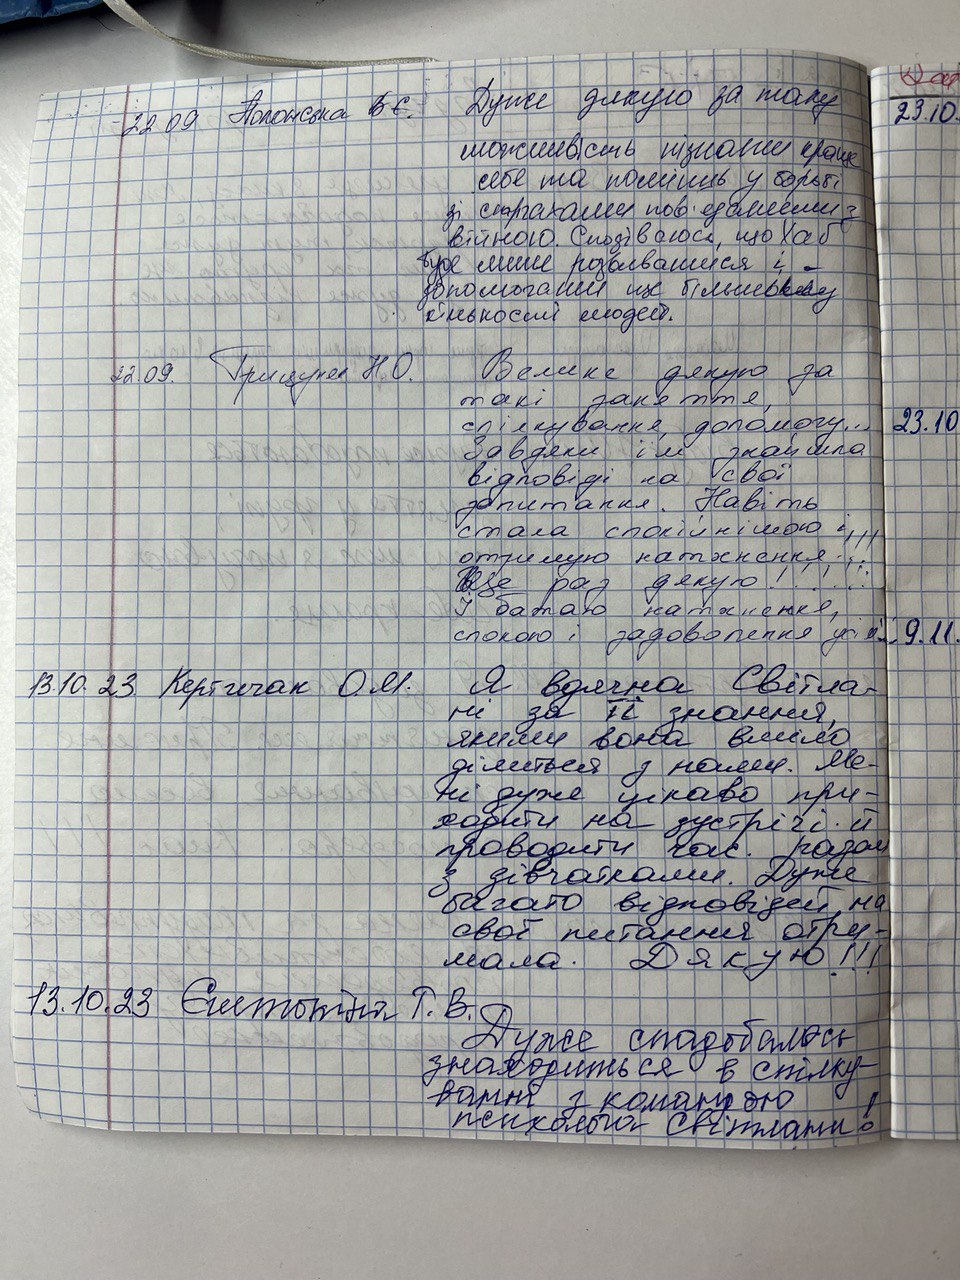 22 09 Полонська В.Є. Дуже дякую за таку
можливість пізнати краще
себе та поміць у борьбі
зі страхами пов'язаними з
війною. Сподіваюсь, що Хаб
буде лише розвиватися і
допомогати ще більшій
кількості людей.
22.09. Грицунова Н.О. Велике дякую за
такі заняття,
спілкування, допомогу...
Завдяки їм знайшла
відповіді на свої
запитання. Навіть
стала спокійнішою і
отримую натхнення!!!
Ще раз дякую!!!!!!
І бажаю натхнення,
спокою і задоволення усім
13.10.23 О.М. Я вдячна Світла-
ні за її знання,
якими вона вміло
ділиться з нами. Ме-
ні дуже цікаво при-
ходити на зустрічі й
проводити час разом
з дівчатками. Дуже
багато відповідей на
свої питання отри-
мала. Дякую!!!
13.10.23 Г.В.
Дуже сподобалось
знаходиться в спілку-
ванні з командою
психолога Світлани!
23.10.
23.10
9.11.